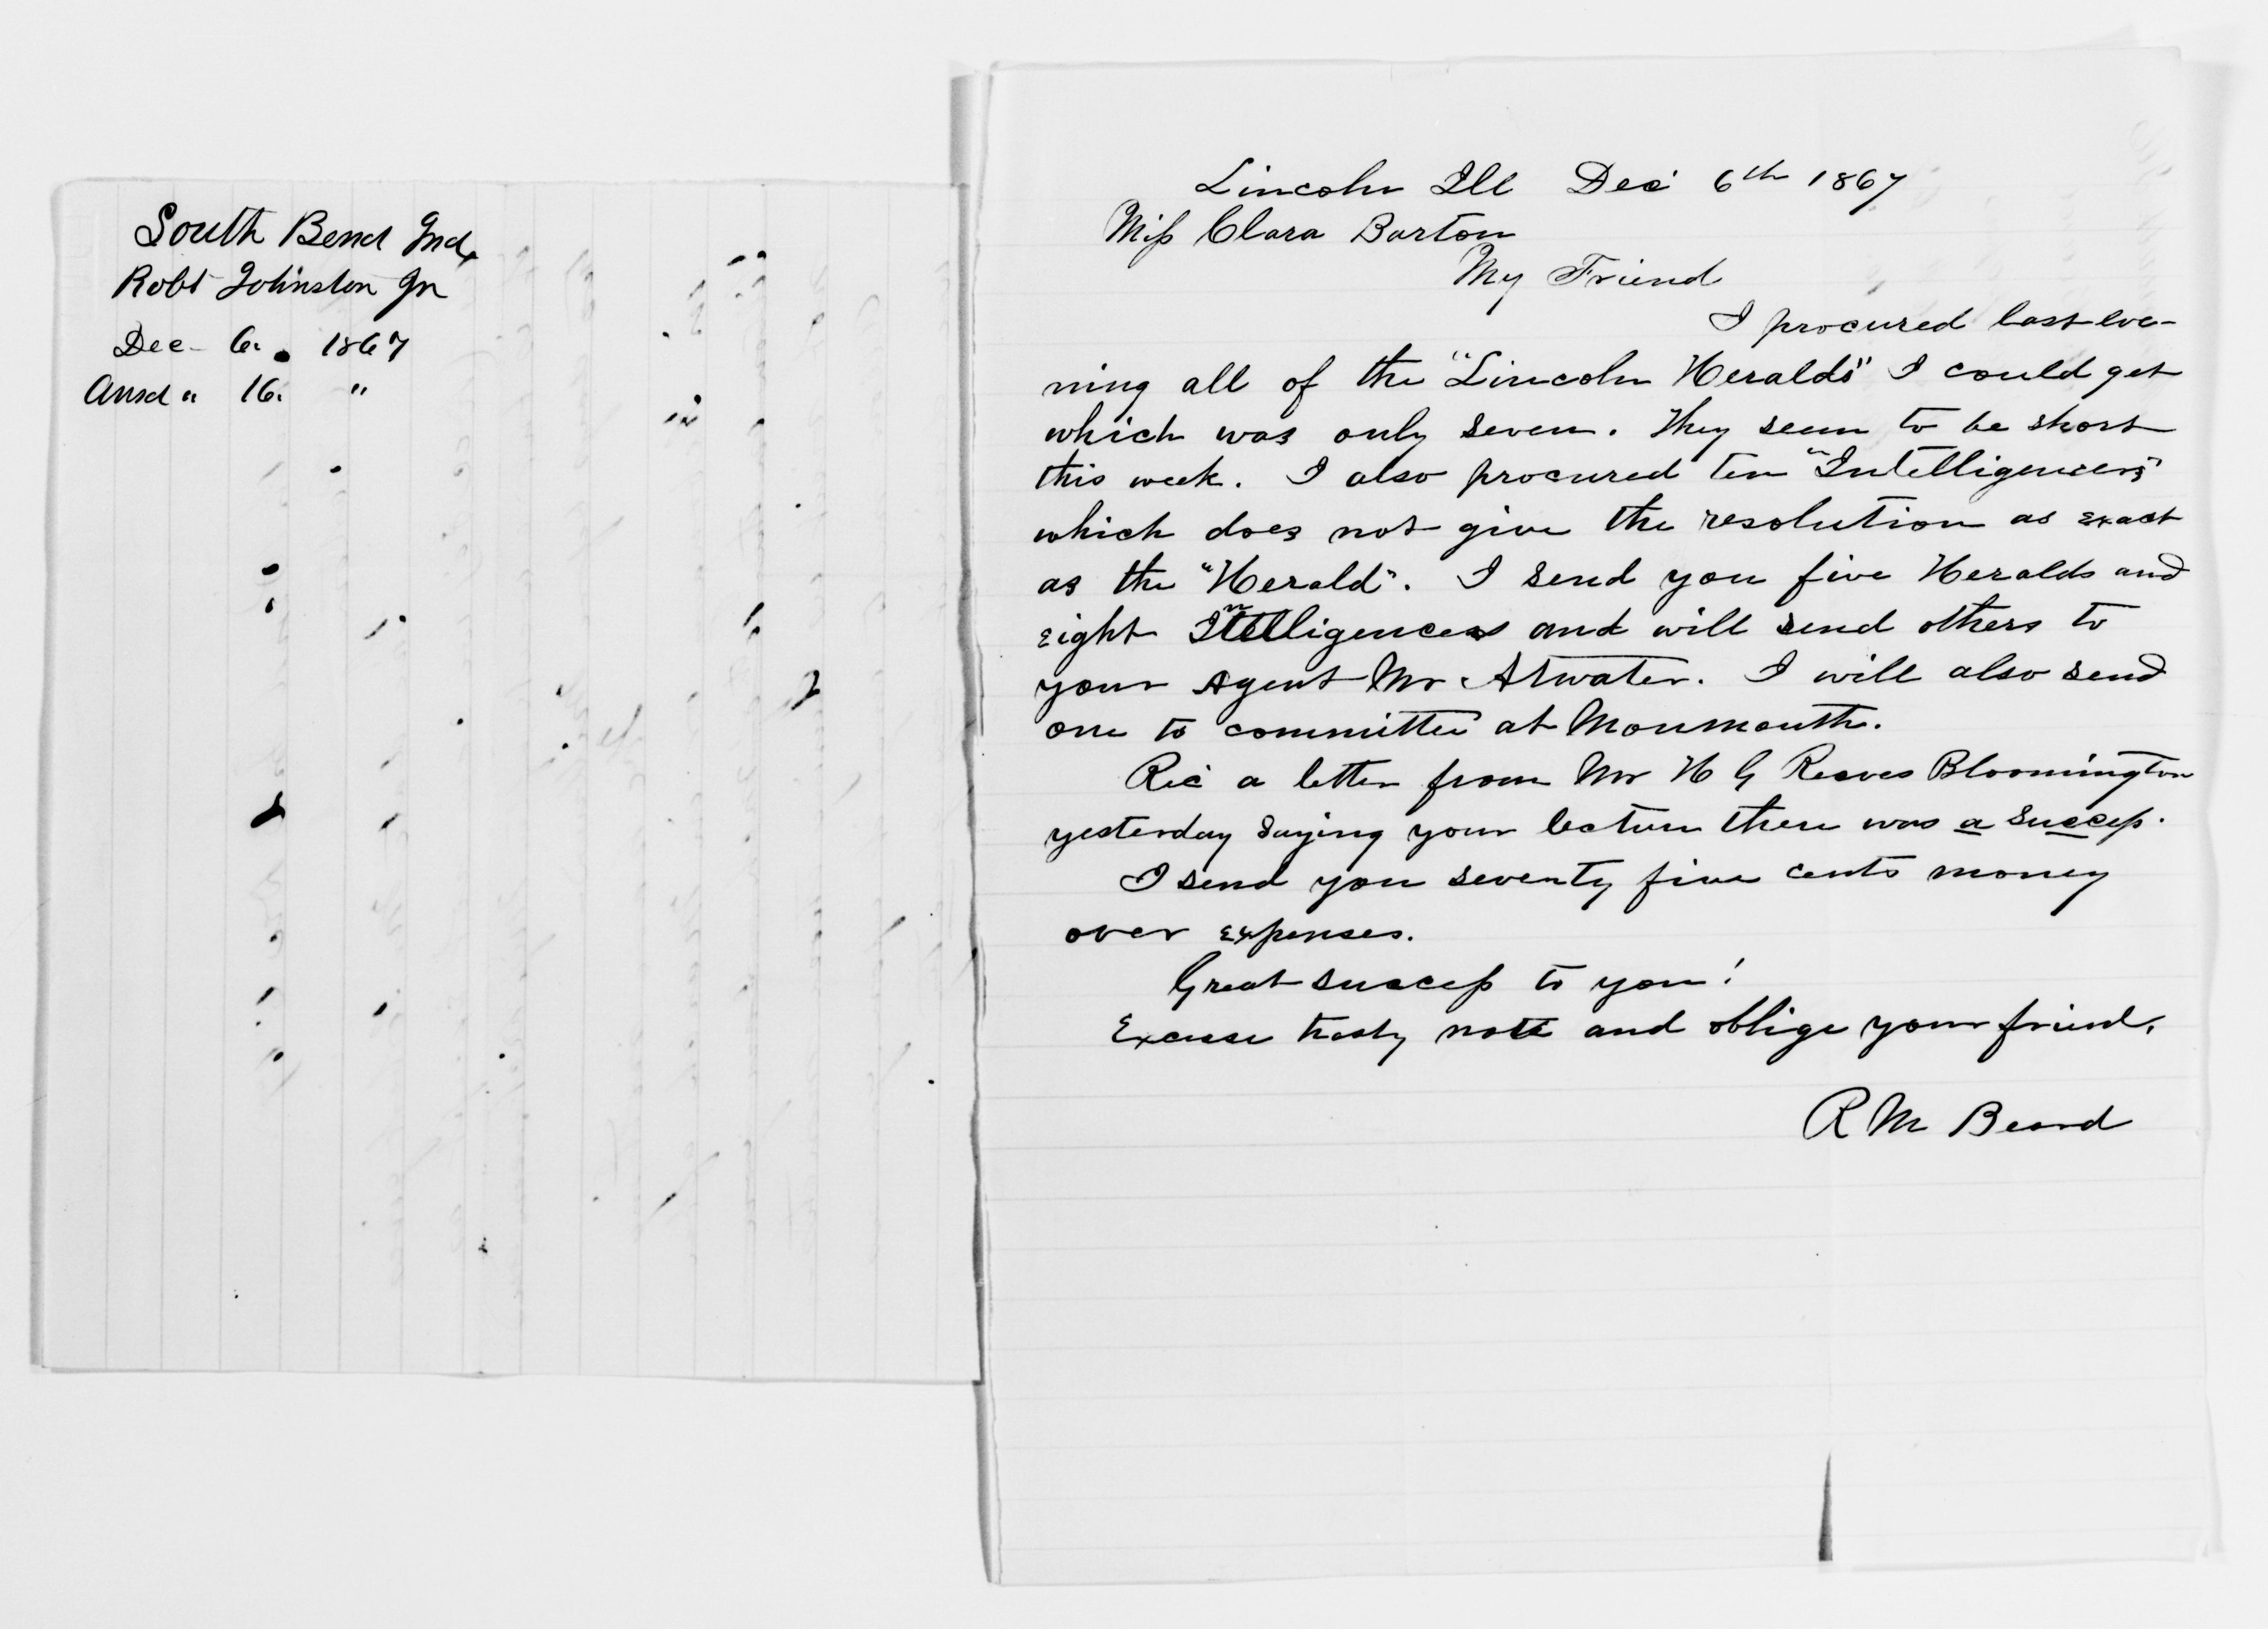 South Bend Ind.
Robt Johnston Jr
Dec 6. 1867
Ansd " 16. "
Lincoln Ill Dec 6th 1867
Miss Clara Barton
My Friend
I procured last eve-
ning all of the "Lincoln Heralds" I could get
which was only seven. They seem to be short
this week. I also procured ten "Intelligencers"
which does not give the resolution as exact
as the "Herald". I send you five Heralds and
eight Intelligencers and will send others to
your Agent Mr Atwater. I will also send
one to committee at Monmouth.
Rec a letter from Mr H G Reeves Bloomington
yesterday saying your lecture there was a success.
I send you seventy five cents money
over expenses.
Great success to you!
Excuse hasty note and oblige your friend,
R M Beard